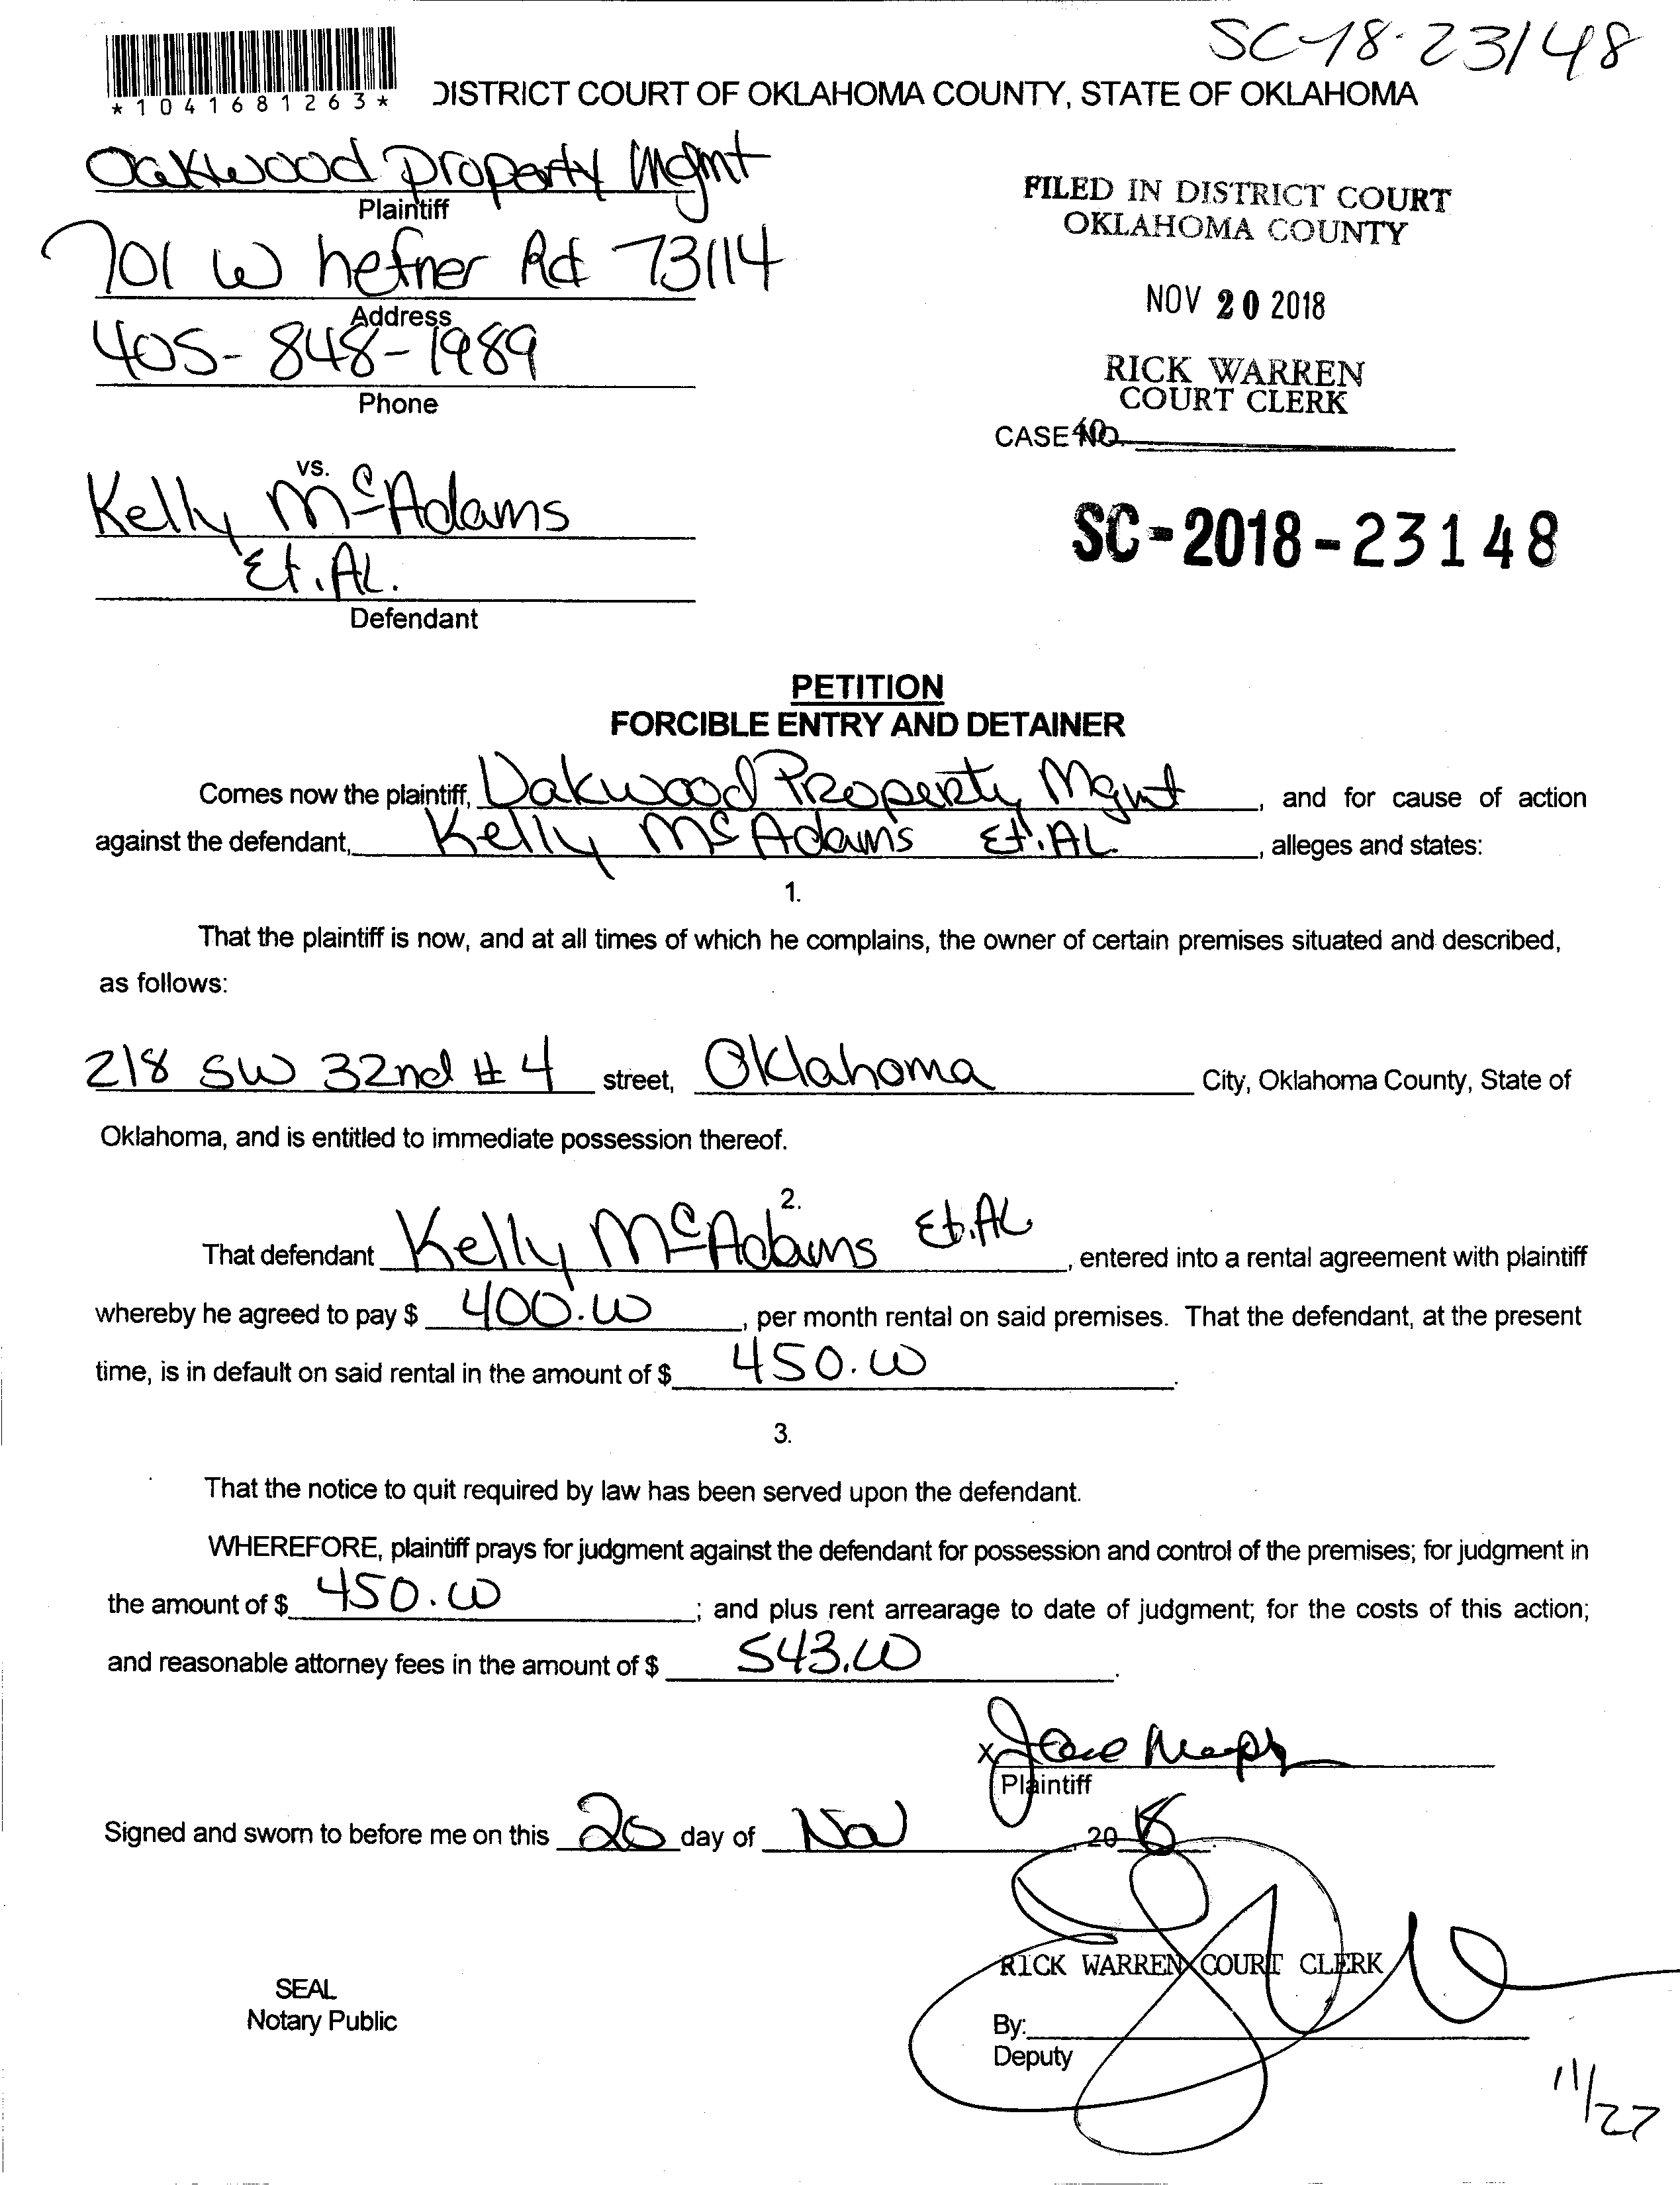 SC-18-23148
*1041681263*
DISTRICT COURT OF OKLAHOMA COUNTY, STATE OF OKLAHOMA
Oakwood Property Mgmt
Plaintiff
701 W hefner Rd 73114
Address
405-848-1989
Phone
FILED IN DISTRICT COURT
OKLAHOMA COUNTY
NOV 20 2018
RICK WARREN
COURT CLERK
CASE NO.
40
vs.
Kelly McAdams
Et. AL.
Defendant
SC-2018-23148
PETITION
FORCIBLE ENTRY AND DETAINER
Comes now the plaintiff, Oakwood Property Mgmt, and for cause of action
against the defendant, Kelly McAdams Et. AL., alleges and states:
1.
That the plaintiff is now, and at all times of which he complains, the owner of certain premises situated and described,
as follows:
218 SW 32nd # 4 street, Oklahoma City, Oklahoma County, State of
Oklahoma, and is entitled to immediate possession thereof.
2.
That defendant Kelly McAdams Et. AL, entered into a rental agreement with plaintiff
whereby he agreed to pay $ 400.00, per month rental on said premises. That the defendant, at the present
time, is in default on said rental in the amount of $ 450.00.
3.
That the notice to quit required by law has been served upon the defendant.
WHEREFORE, plaintiff prays for judgment against the defendant for possession and control of the premises; for judgment in
the amount of $ 450.00; and plus rent arrearage to date of judgment; for the costs of this action;
and reasonable attorney fees in the amount of $ 543.00.
X
Plaintiff
Signed and sworn to before me on this 20 day of Nov, 2018.
RICK WARREN COURT CLERK
SEAL
Notary Public
By:
Deputy
11/27